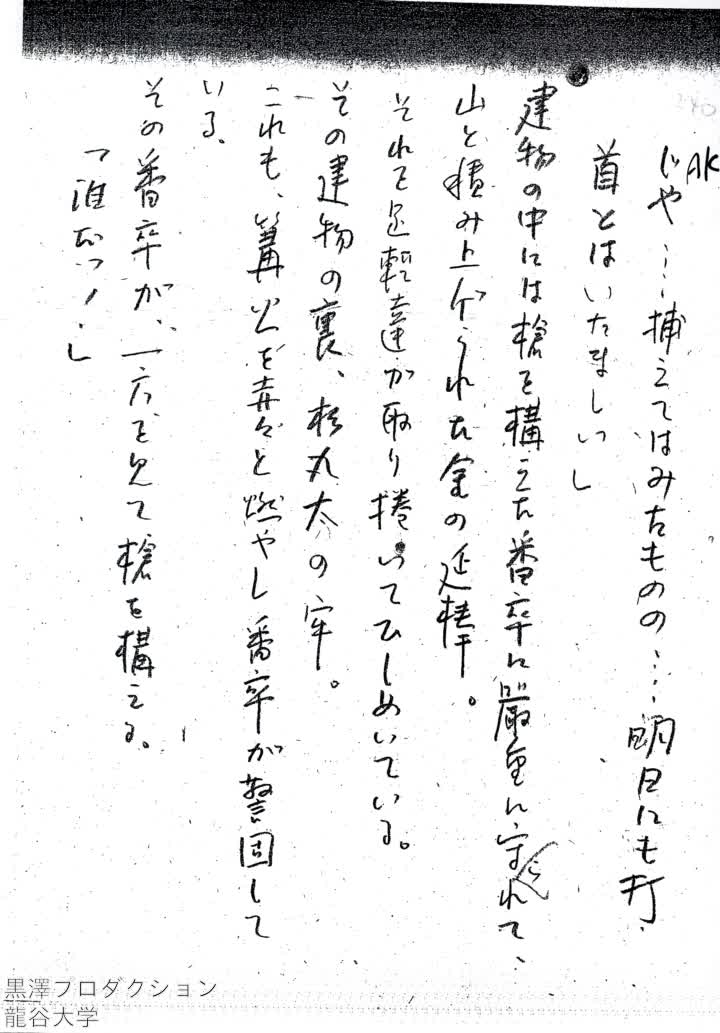 AK
じや…捕えてはみたものの…明日にも打
首とはいたましい」
建物の中には槍を構えた番卒に厳重に守られて、
山と積み上げられた金の延棒。
それを足軽達が取り捲いてひしめいている。
その建物の裏、松丸太の牢。
これも、篝火を赤々と燃やし番卒が警固して
いる、
その番卒が、一方を見て槍を構える。
「誰だッ！」
240
黒澤プロダクション
龍谷大学